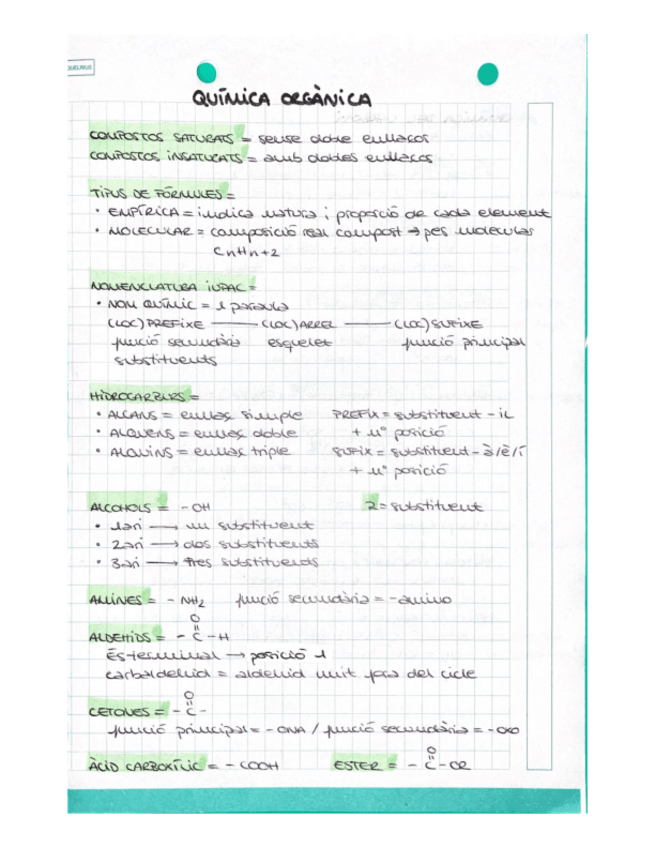 QUÍMICA ORGÀNICA
COMPOSTOS SATURATS = sense doble enllaços
COMPOSTOS INSATURATS = amb dobles enllaços
TIPUS DE FÓRMULES =
• EMPÍRICA = indica natura i proporció de cada element
• MOLECULAR = composició real compost → pes molècules
CnHn+2
NOMENCLATURA IUPAC =
• NOM QUÍMIC = 1 paraula
(LOC) PREFIXE —— (LOC) ARREL —— (LOC) SUFIXE
funció secundària esquelet funció principal
substituents
HIDROCARBURS =
• ALCANS = enllaç simple PREFIX = substituent - IL
• ALQUENS = enllaç doble + nº posició
• ALQUINS = enllaç triple SUFIX = substituent - à/è/í
+ nº posició
ALCOHOLS = - OH 2 = substituent
• 1ari → un substituent
• 2ari → dos substituents
• 3ari → tres substituents
AMINES = - NH2 funció secundària = - amino
O
ALDEHIDS = - C - H
És terminal → posició 1
carbaldehid = aldehid unit fora del cicle
O
CETONES = - C -
funció principal = - ONA / funció secundària = - oxo
O
ÀCID CARBOXÍLIC = - COOH ESTER = - C - OR